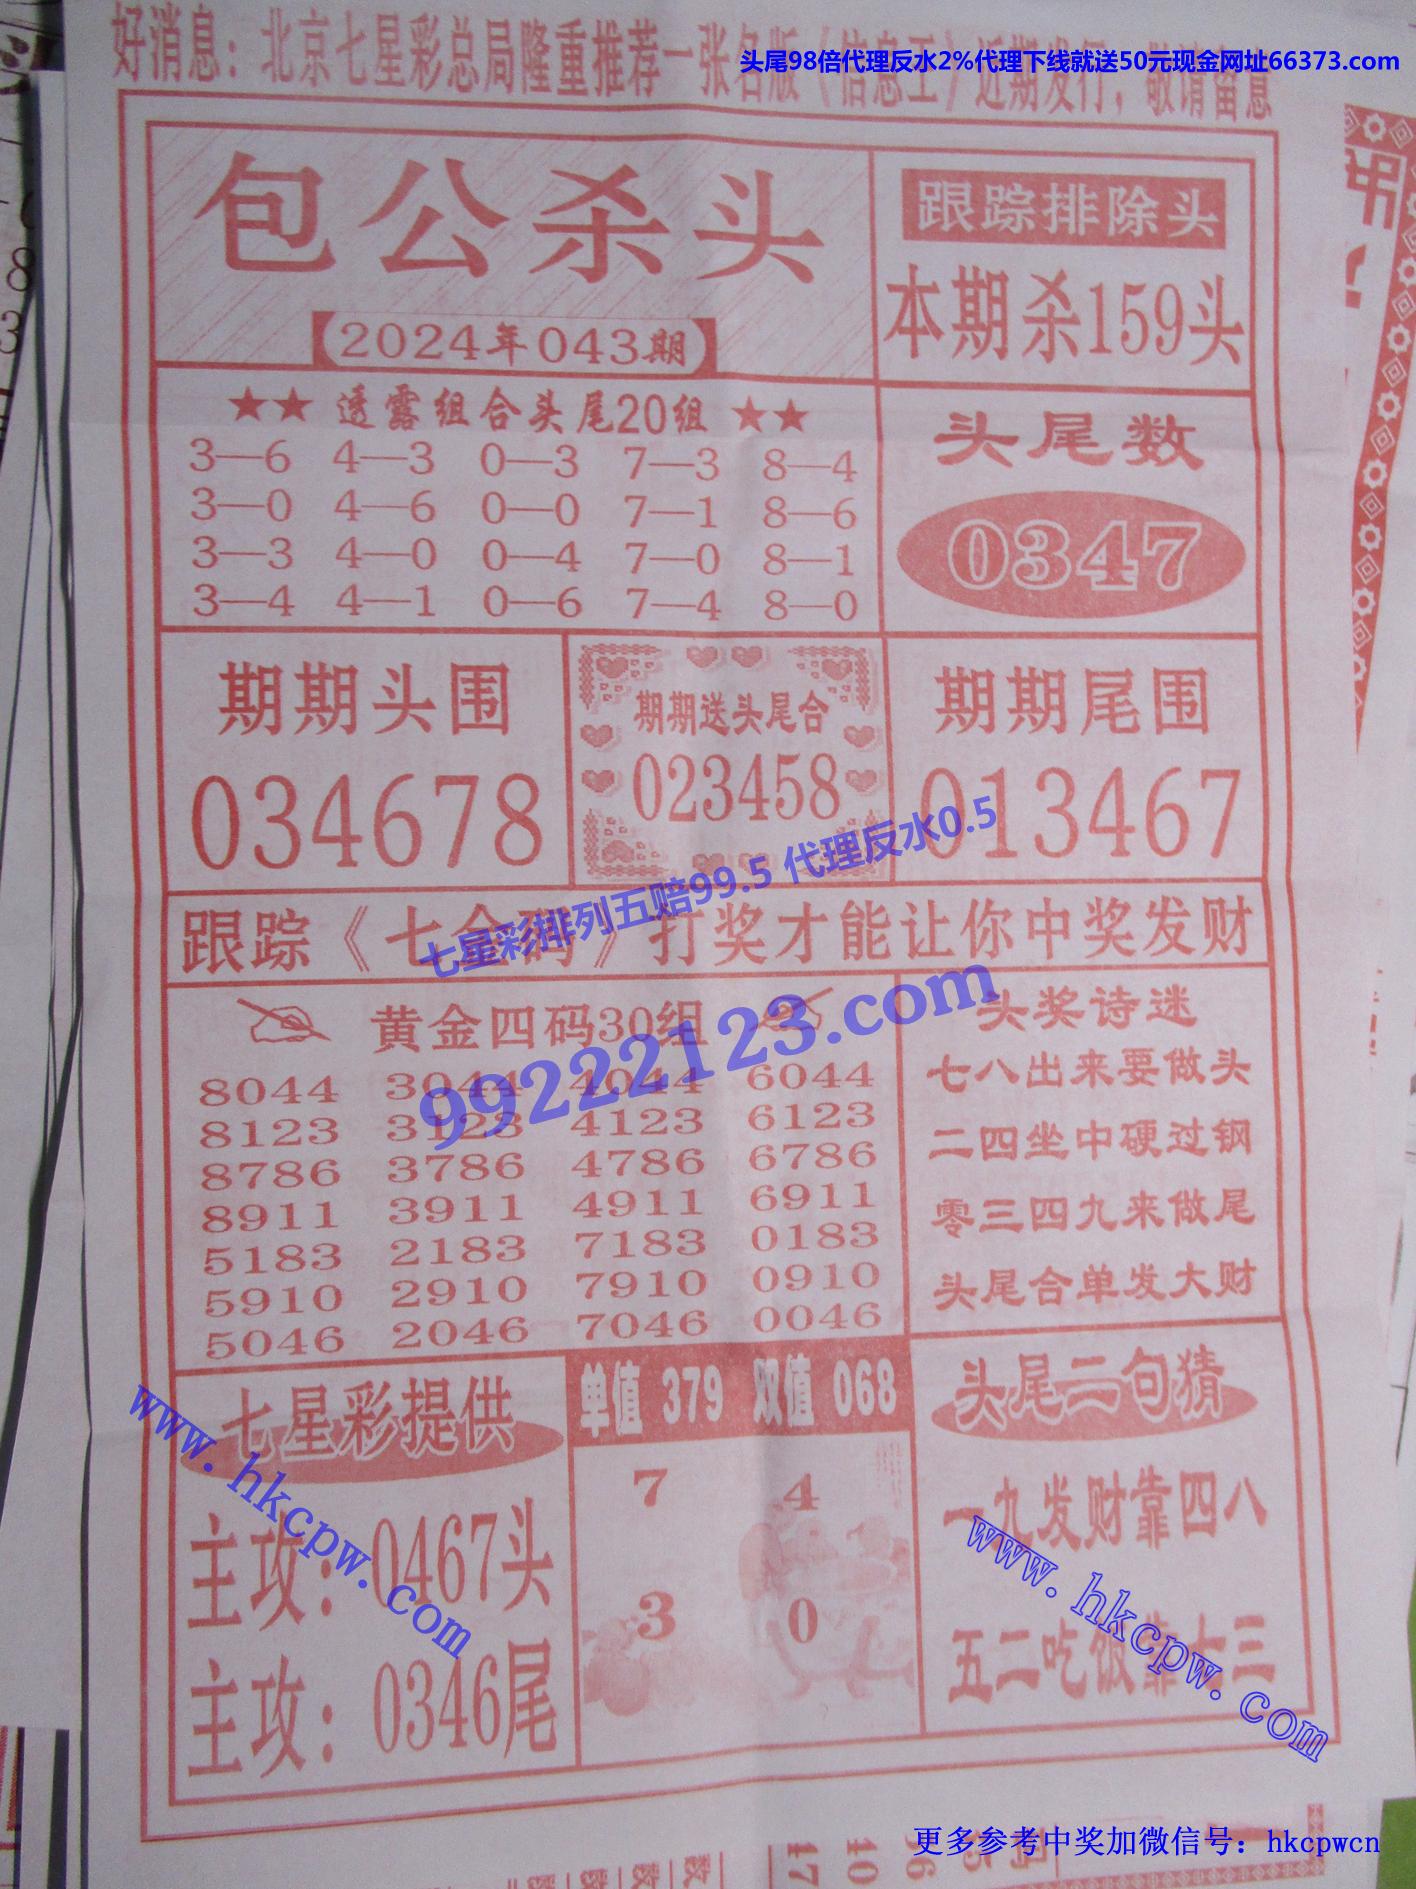 好消息：北京七星彩总局隆重推荐一张名版《信息王》近期发行，敬请留意
头尾98倍代理反水2%代理下线就送50元现金网址66373.com
包公杀头
【2024年043期】
跟踪排除头
本期杀159头
★★ 透露组合头尾20组 ★★
3—6 4—3 0—3 7—3 8—4
3—0 4—6 0—0 7—1 8—6
3—3 4—0 0—4 7—0 8—1
3—4 4—1 0—6 7—4 8—0
头尾数
0347
期期头围
034678
期期送头尾合
023458
期期尾围
013467
七星彩排列五赔99.5 代理反水0.5
跟踪《七全码》打奖才能让你中奖发财
99222123.com
黄金四码30组
8044 3044 4044 6044
8123 3123 4123 6123
8786 3786 4786 6786
8911 3911 4911 6911
5183 2183 7183 0183
5910 2910 7910 0910
5046 2046 7046 0046
头奖诗迷
七八出来要做头
二四坐中硬过钢
零三四九来做尾
头尾合单发大财
七星彩提供
主攻：0467头
主攻：0346尾
www.hkcpw.com
单值 379 双值 068
7 4
3 0
头尾二句猜
一九发财靠四八
五二吃饭靠七三
www.hkcpw.com
更多参考中奖加微信号：hkcpwcn